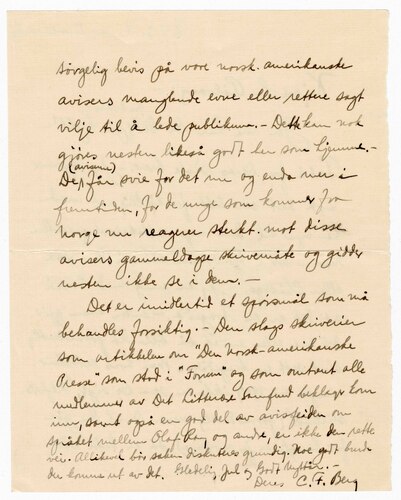 sørgelig bevis på vore norsk-amerikanske
avisers manglende evne eller rettere sagt
vilje til å lede publikum. - Dette kan nok
gjøres nesten likeså godt her som hjemme. -
De (aviserne) får svie for det nu og enda mer i
fremtiden, for de unge som kommer fra
Norge nu reagerer sterkt mot disse
avisers gammeldagse skrivemåte og gidder
nesten ikke se i dem. -
Det er imidlertid et spörsmål som må
behandles forsiktig. - Den slags skriverier
som artikkelen om "Den Norsk-amerikanske
Presse" som stod i "Forum" og som omtrent alle
medlemmer av Det Litterære Samfund beklager kom
inn, samt også en god del av avisfeiden om
språket mellem Olaf Ray og andre, er ikke den rette
vei. Allikevel bör saken diskuteres grundig. Noe godt burde
der komme ut av det. Gledelig Jul og Godt Nyttår. -
Deres C. F. Berg